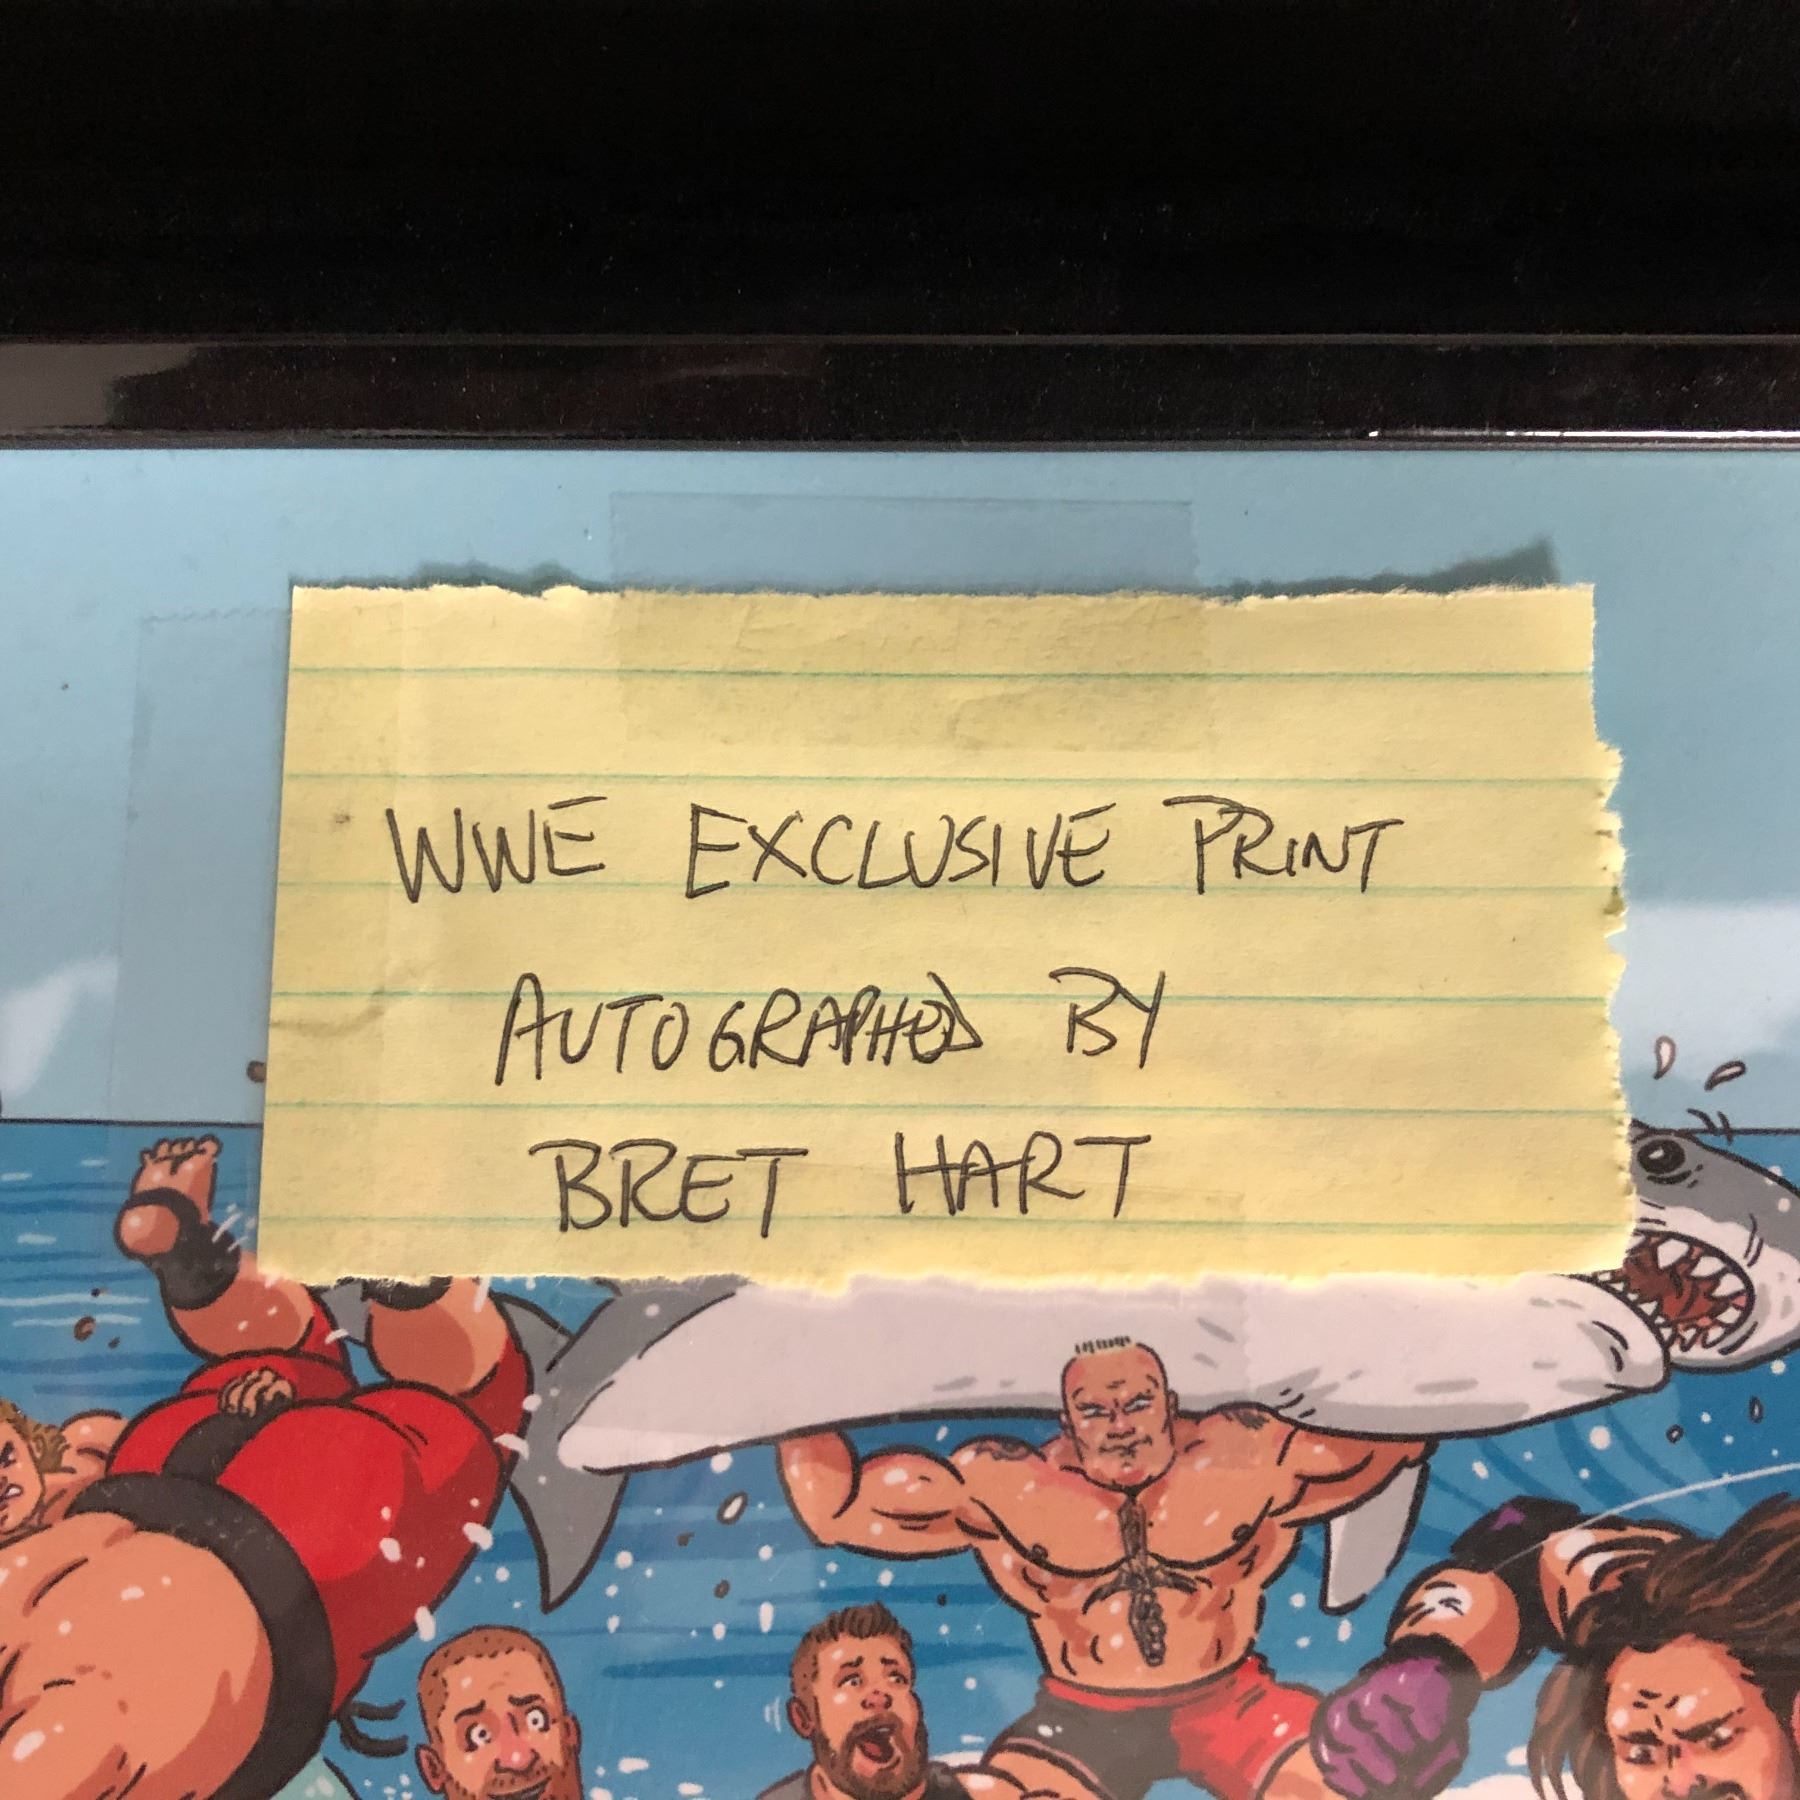 WWE EXCLUSIVE PRINT
AUTOGRAPHED BY
BRET HART